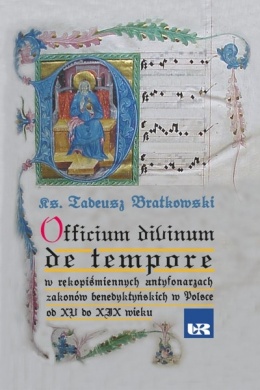 Ks. Tadeusz Bratkowski
Officium divinum
de tempore
w rękopiśmiennych antyfonarzach
zakonów benedyktyńskich w Polsce
od XV do XIX wieku
UR